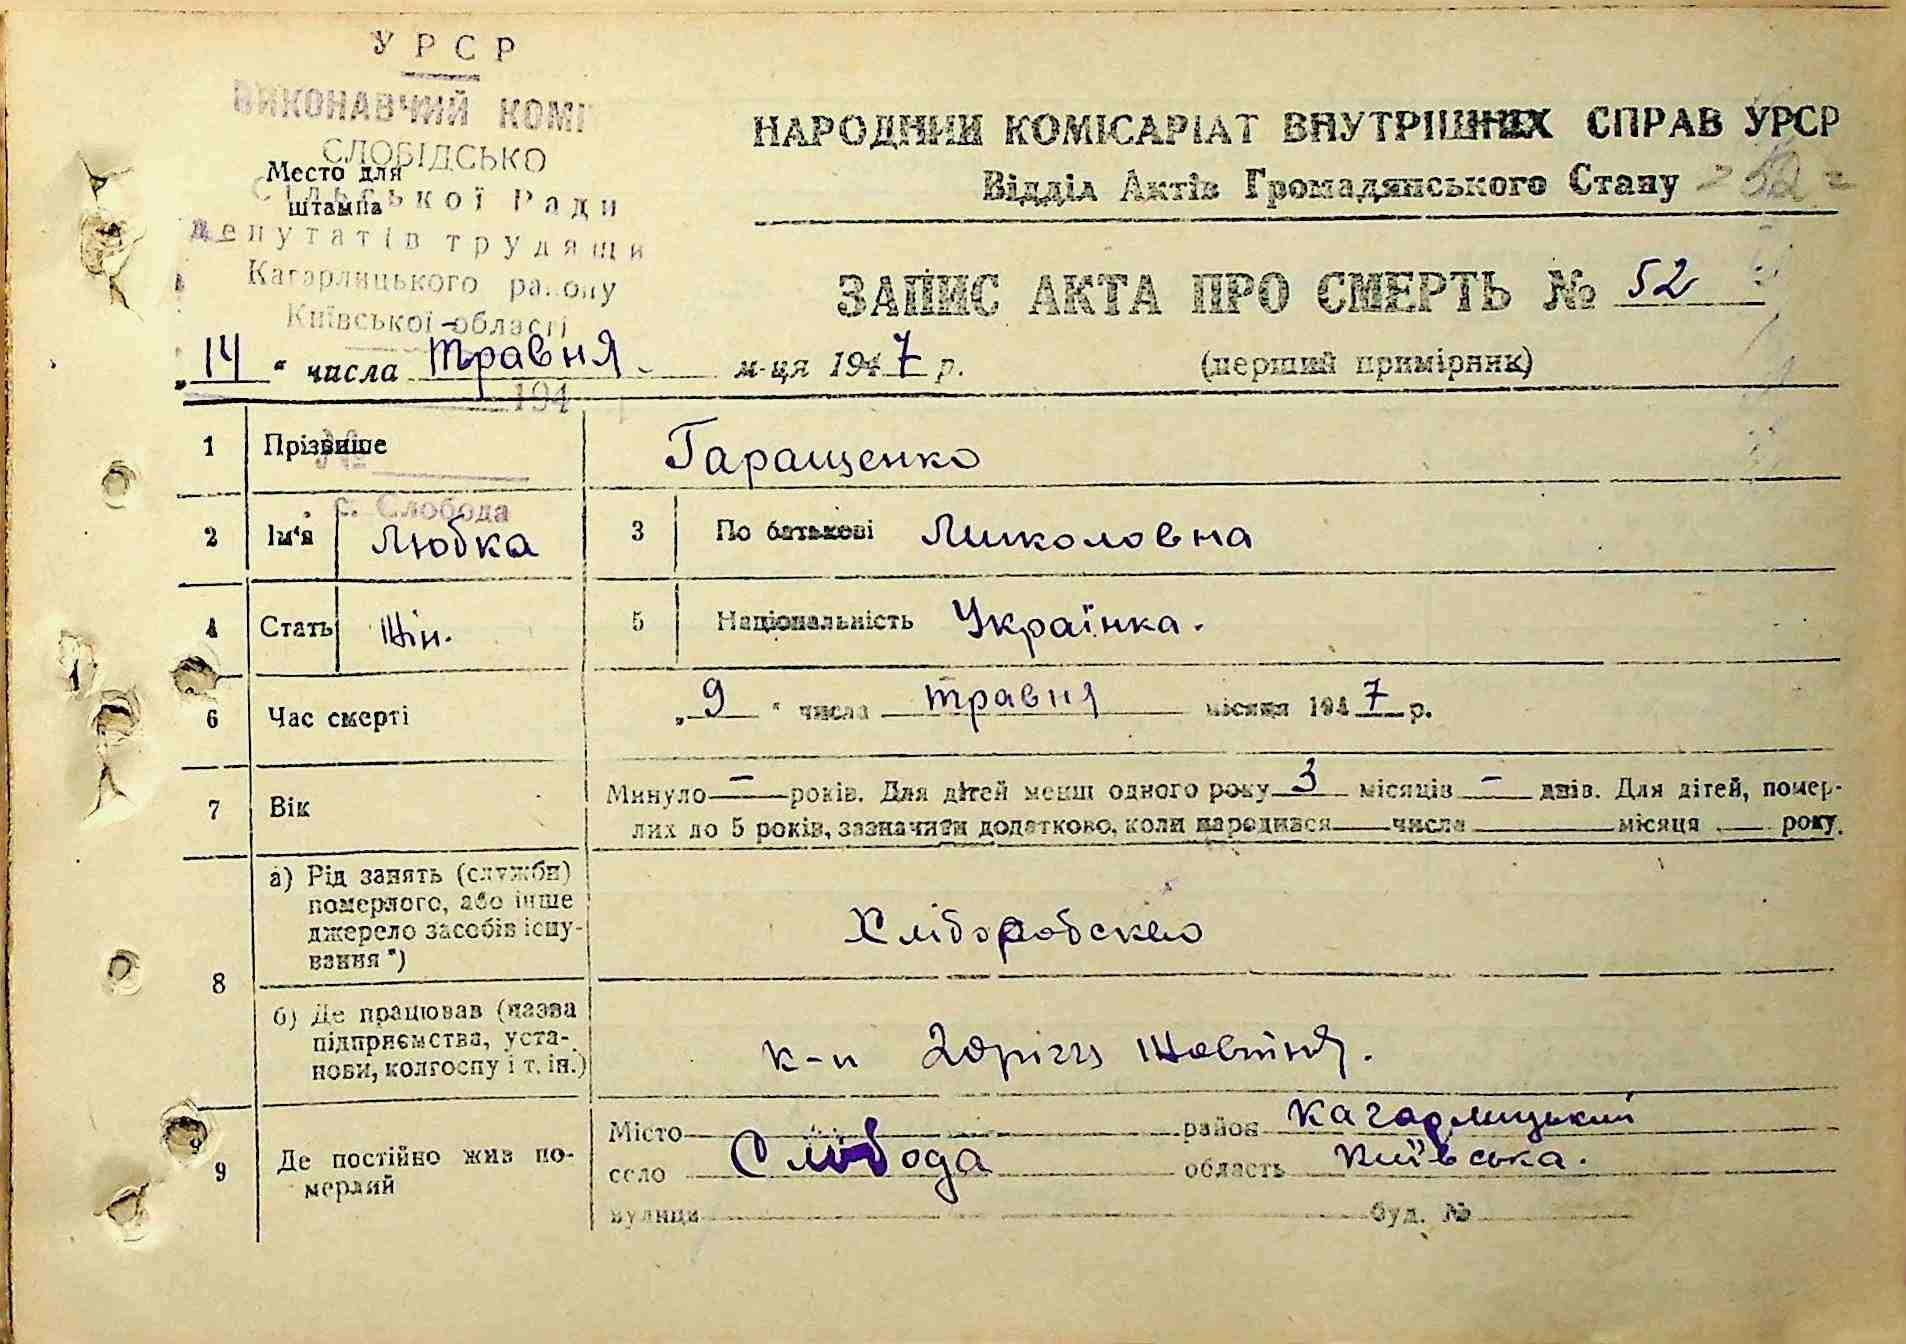 УРСР
ВИКОНАВЧИЙ КОМІ
СЛОБІДСЬКО
Место для
СІЛЬСЬКОЇ Ради
штампа
Депутатів трудящи
Кагарлицького району
Київської області
194
№
с. Слобода
НАРОДНИЙ КОМІСАРІАТ ВНУТРІШНИХ СПРАВ УРСР
Відділ Актів Громадянського Стану - 52 -
ЗАПИС АКТА ПРО СМЕРТЬ № 52
„14“ числа травня м-ця 1947 р. (перший примірник)
1 Прізвише Гаращенко
2 Ім'я Любка 3 По батькові Миколовна
4 Стать Жін. 5 Національність Українка.
6 Час смерті „9“ числа травня місяця 1947 р.
7 Вік Минуло — років. Для дітей менш одного року 3 місяців — днів. Для дітей, помер-
лих до 5 років, зазначити додатково, коли народився числа місяця року.
8 а) Рід занять (служби)
померлого, або інше
джерело засобів існу-
вання *)
Хліборобство
б) Де працював (назва
підприємства, уста-
нови, колгоспу і т. ін.)
к-п Жовтня.
9 Де постійно жив по-
мерлий
Місто район Кагарлицький
село Слобода область Київська.
вулиця буд. №